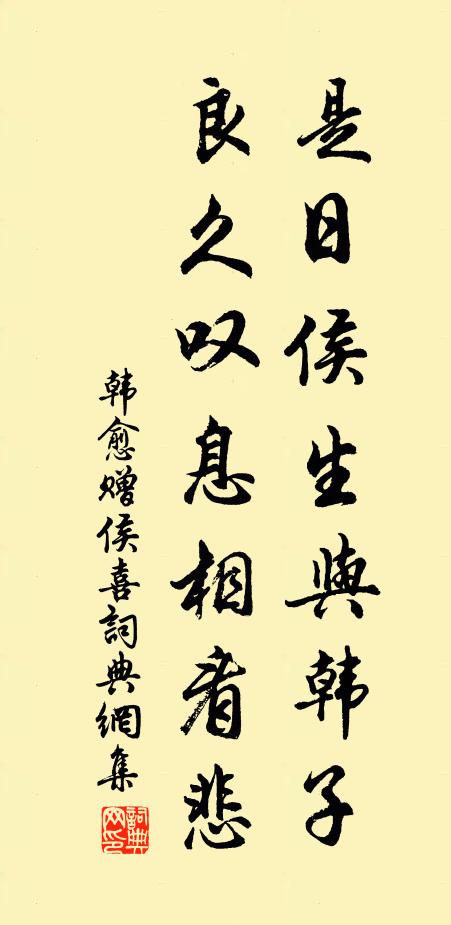 是日侯生與韩子
良久叹息相看悲
韩愈赠侯喜詞典網集
詞典网印